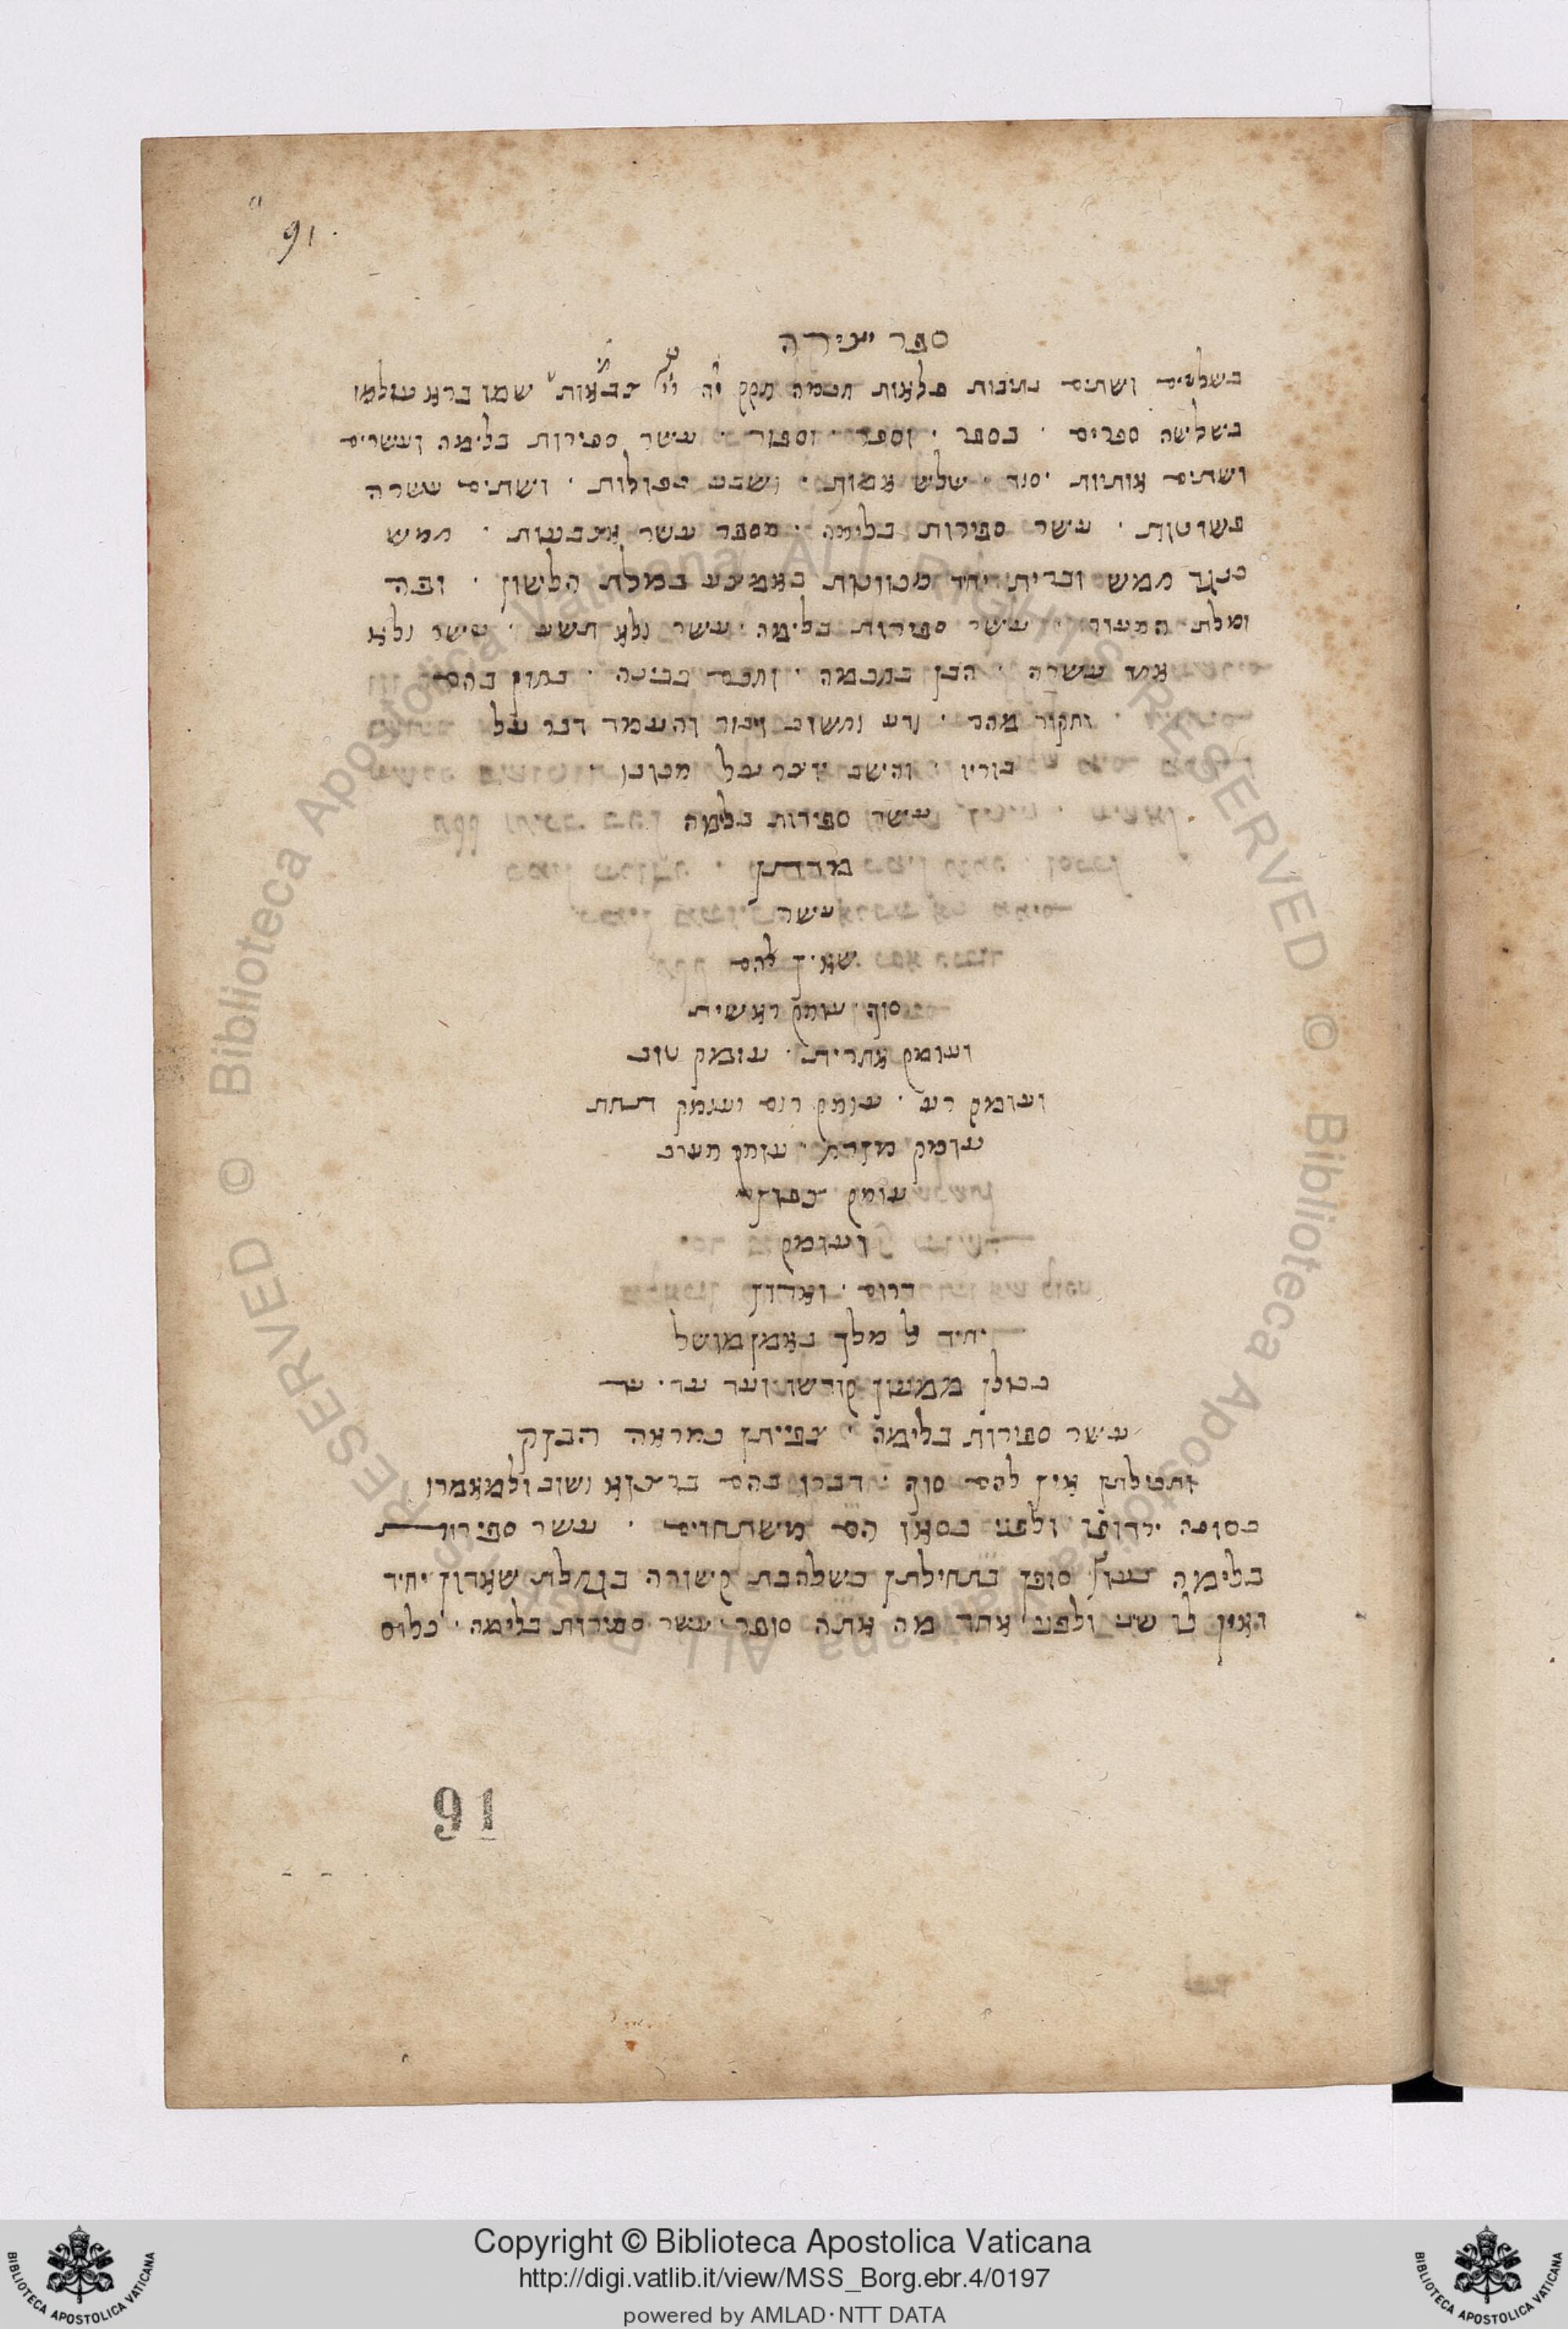 91
ספר יצירה
בשלשים ושתים נתיבות פלאות חכמה חקק יה יי צבאות שמו ברא עולמו
בשלשה ספרים · בספר · וספר · וספור · עשר ספירות בלימה ועשרים
ושתים אותיות יסוד · שלש אמות · ושבע כפולות · ושתים עשרה
פשוטות · עשר ספירות בלימה · מספר עשר אצבעות · חמש
כנגד חמש וברית יחיד מכוונות באמצע במלת הלשון · ובה
ומלת המעור · עשר ספירות בלימה · עשר ולא תשע · עשר ולא
אחד עשרה · הבן בחכמה · וחכם בבינה · בחון בהם
וחקור מהם · ודע וחשוב וצור והעמד דבר על
בוריו · והישב יוצר על מכונו ·
עשר ספירות בלימה
מדתן
עשר
שאין להם
סוף עומק ראשית
ועומק אחרית · עומק טוב
ועומק רע · עומק רום ועומק תחת
עומק מזרח · עומק מערב
עומק צפון
ועומק
דרום · ואדון
יחיד אל מלך נאמן מושל
בכולן ממעון קודשו ועד עד · עד
עשר ספירות בלימה · צפייתן כמראה הבזק
ותכליתן אין להם סוף · דברו בהם ברצוא ושוב ולמאמרו
כסופה ירדופו ולפני כסאו הם משתחוים · עשר ספירות
בלימה נעוץ סופן בתחילתן כשלהבת קשורה בגחלת שאדון יחיד
ואין לו שני ולפני אחד מה אתה סופר · עשר ספירות בלימה · כלום
91
Copyright © Biblioteca Apostolica Vaticana
http://digi.vatlib.it/view/MSS_Borg.ebr.4/0197
powered by AMLAD·NTT DATA